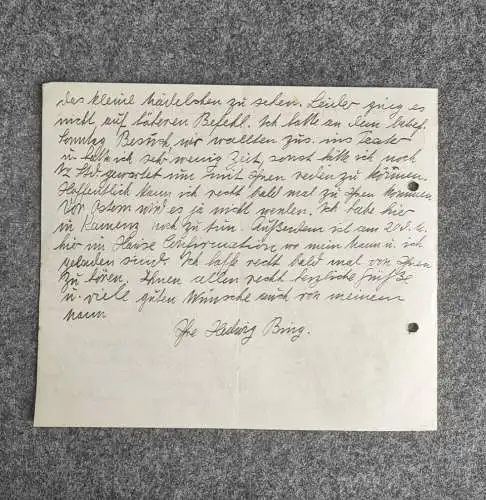 das kleine Mädelchen zu sehen. Leider ging es
nicht auf höheren Befehl. Ich hatte an dem betref.
Sonntag Besuch, wir wollten zus. ins Teater
u. hatte ich sehr wenig Zeit, sonst hätte ich noch
½ Std. gewartet um mit Ihnen reden zu können.
Hoffentlich kann ich recht bald mal zu Ihnen kommen,
vor Ostern wird es ja nicht werden. Ich habe hier
in Kamenz noch zu tun. Außerdem ist am
hier im Hause Confirmation wo mein Mann u. ich
geladen sind. Ich hoffe recht bald mal von Ihnen
zu hören. Ihnen allen recht herzliche Grüße
u. viele guten Wünsche auch von meinem
Mann
Ihre Hedwig Bing.